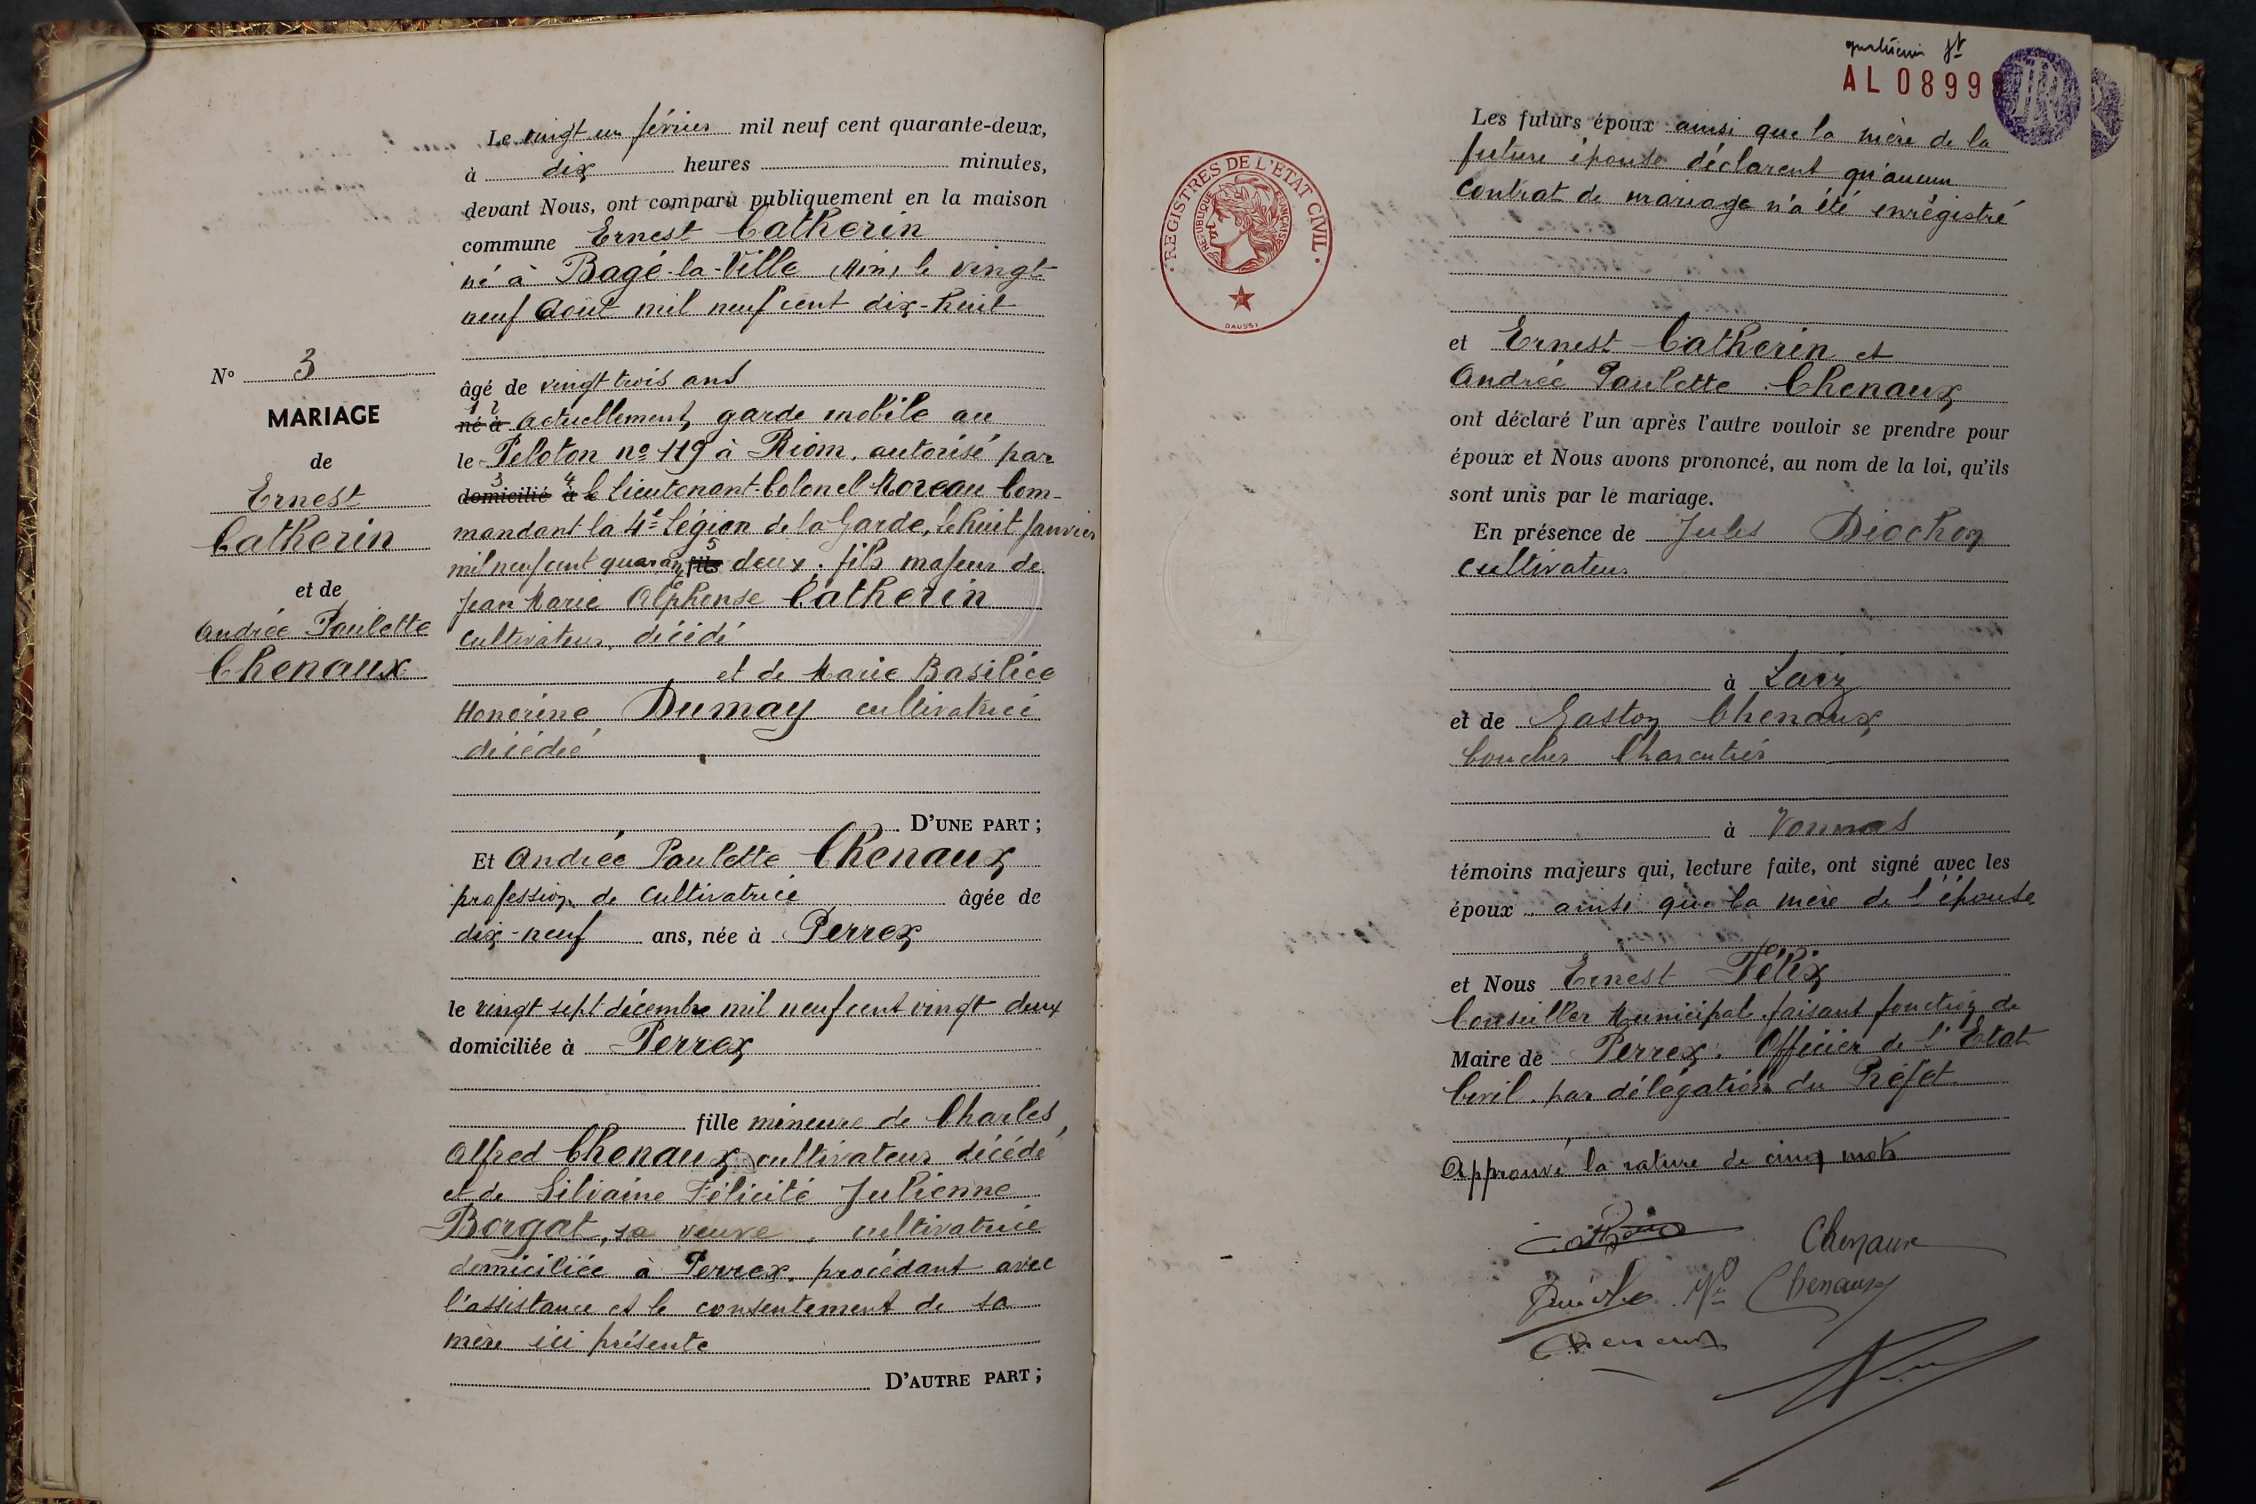 N° 3
MARIAGE
de
Ernest
Catherin
et de
Andrée Paulette
Chenaux
Le vingt un février mil neuf cent quarante-deux,
à dix heures minutes,
devant Nous, ont comparu publiquement en la maison
commune Ernest Catherin
né à Bagé-la-Ville (Ain) le vingt
neuf Août mil neuf cent dix-huit
âgé de vingt trois ans
1 2
né à actuellement garde mobile au
le Peloton n° 119 à Riom, autorisé par
3 4
domicilié à le Lieutenant-Colonel Moreau Com-
mandant la 4e Légion de la Garde, le huit Janvier
5
mil neuf cent quarante fils deux. fils majeur de
Jean Marie Alphonse Catherin
cultivateur, décédé
et de Marie Basilice
Honorine Dumay cultivatrice
décédée
D'UNE PART ;
Et Andrée Paulette Chenaux
profession de cultivatrice âgée de
dix-neuf ans, née à Perrex
le vingt sept décembre mil neuf cent vingt deux
domiciliée à Perrex
fille mineure de Charles,
Alfred Chenaux, cultivateur décédé
et de Silvaine Félicité Julienne
Borgat, sa veuve, cultivatrice
domiciliée à Perrex, procédant avec
l'assistance et le consentement de sa
mère ici présente
D'AUTRE PART ;
AL 0899
REGISTRES DE L'ETAT CIVIL
REPUBLIQUE FRANÇAISE
DAUSSY
Les futurs époux ainsi que la mère de la
future épouse déclarent qu'aucun
contrat de mariage n'a été enrégistré
et Ernest Catherin et
Andrée Paulette Chenaux
ont déclaré l'un après l'autre vouloir se prendre pour
époux et Nous avons prononcé, au nom de la loi, qu'ils
sont unis par le mariage.
En présence de Jules Diochon
cultivateur
à Laiz
et de Gaston Chenaux
boucher Charcutier
à Vonnas
témoins majeurs qui, lecture faite, ont signé avec les
époux ainsi que la mère de l'épouse
et Nous Ernest Félix
Conseiller Municipal faisant fonction de
Maire de Perrex. Officier de l'Etat
Civil. par délégation du Préfet
Approuvé la rature de cinq mots
Chenaux
Chenaux
Chenaux